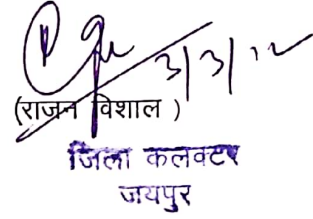 3/3/12
(राजन विशाल )
जिला कलक्टर
जयपुर